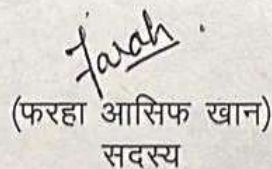 Farah.
(फरहा आसिफ खान)
सदस्य